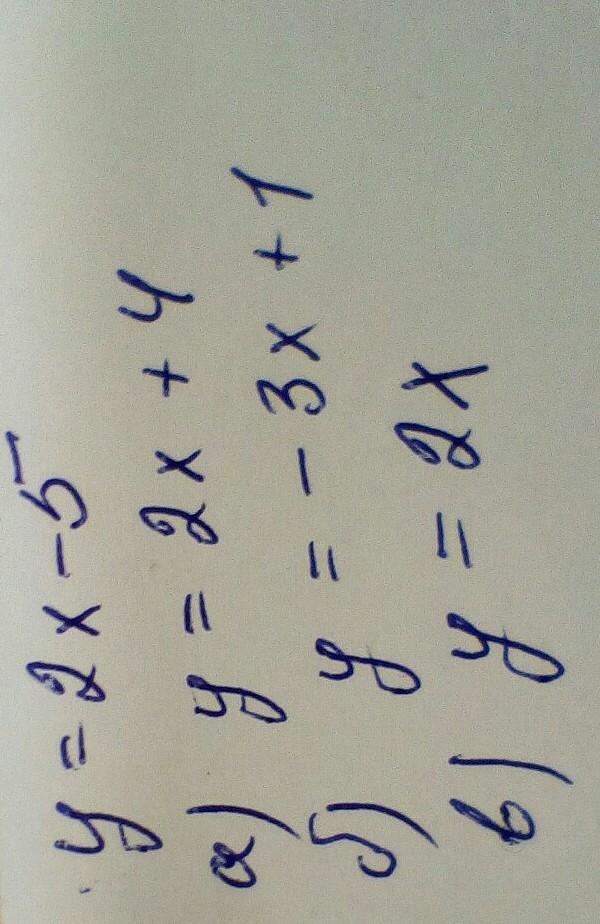 y = 2x - 5
а) y = 2x + 4
б) y = - 3x + 1
в) y = 2x